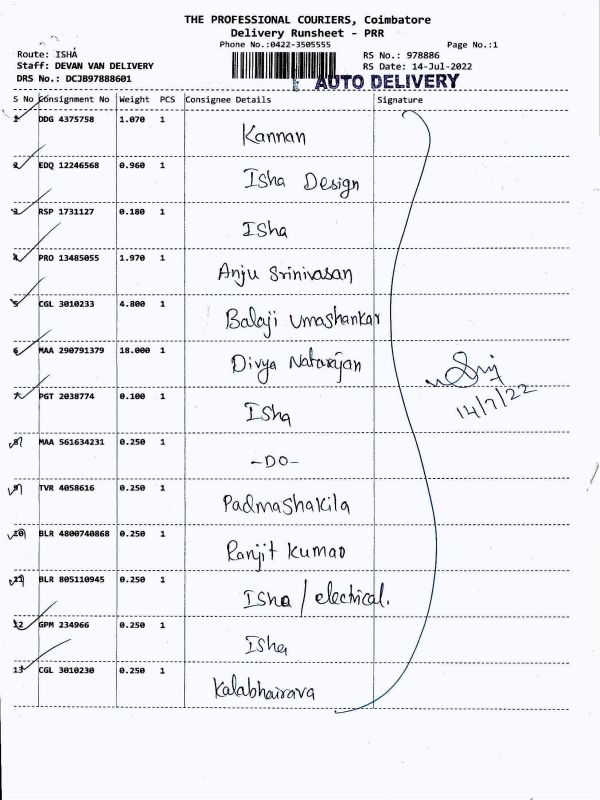 THE PROFESSIONAL COURIERS, Coimbatore
Delivery Runsheet - PRR
Phone No.:0422-3505555 Page No.:1
Route: ISHA RS No.: 978886
Staff: DEVAN VAN DELIVERY RS Date: 14-Jul-2022
DRS No.: DCJB97888601 AUTO DELIVERY
S No Consignment No Weight PCS Consignee Details Signature
1 DDG 4375758 1.070 1 Kannan
2 EDQ 12246568 0.960 1 Isha Design
3 RSP 1731127 0.180 1 Isha
4 PRO 13485055 1.970 1 Anju Srinivasan
5 CGL 3010233 4.800 1 Balaji Umashankar
6 MAA 290791379 18.000 1 Divya Natarajan
7 PGT 2038774 0.100 1 Isha
14/7/22
8 MAA 561634231 0.250 1 -DO-
9 TVR 4058616 0.250 1 Padmashakila
10 BLR 4800740868 0.250 1 Ranjit Kumar
11 BLR 805110945 0.250 1 Isha / electrical.
12 GPM 234966 0.250 1 Isha
13 CGL 3010230 0.250 1 Kalabhairava